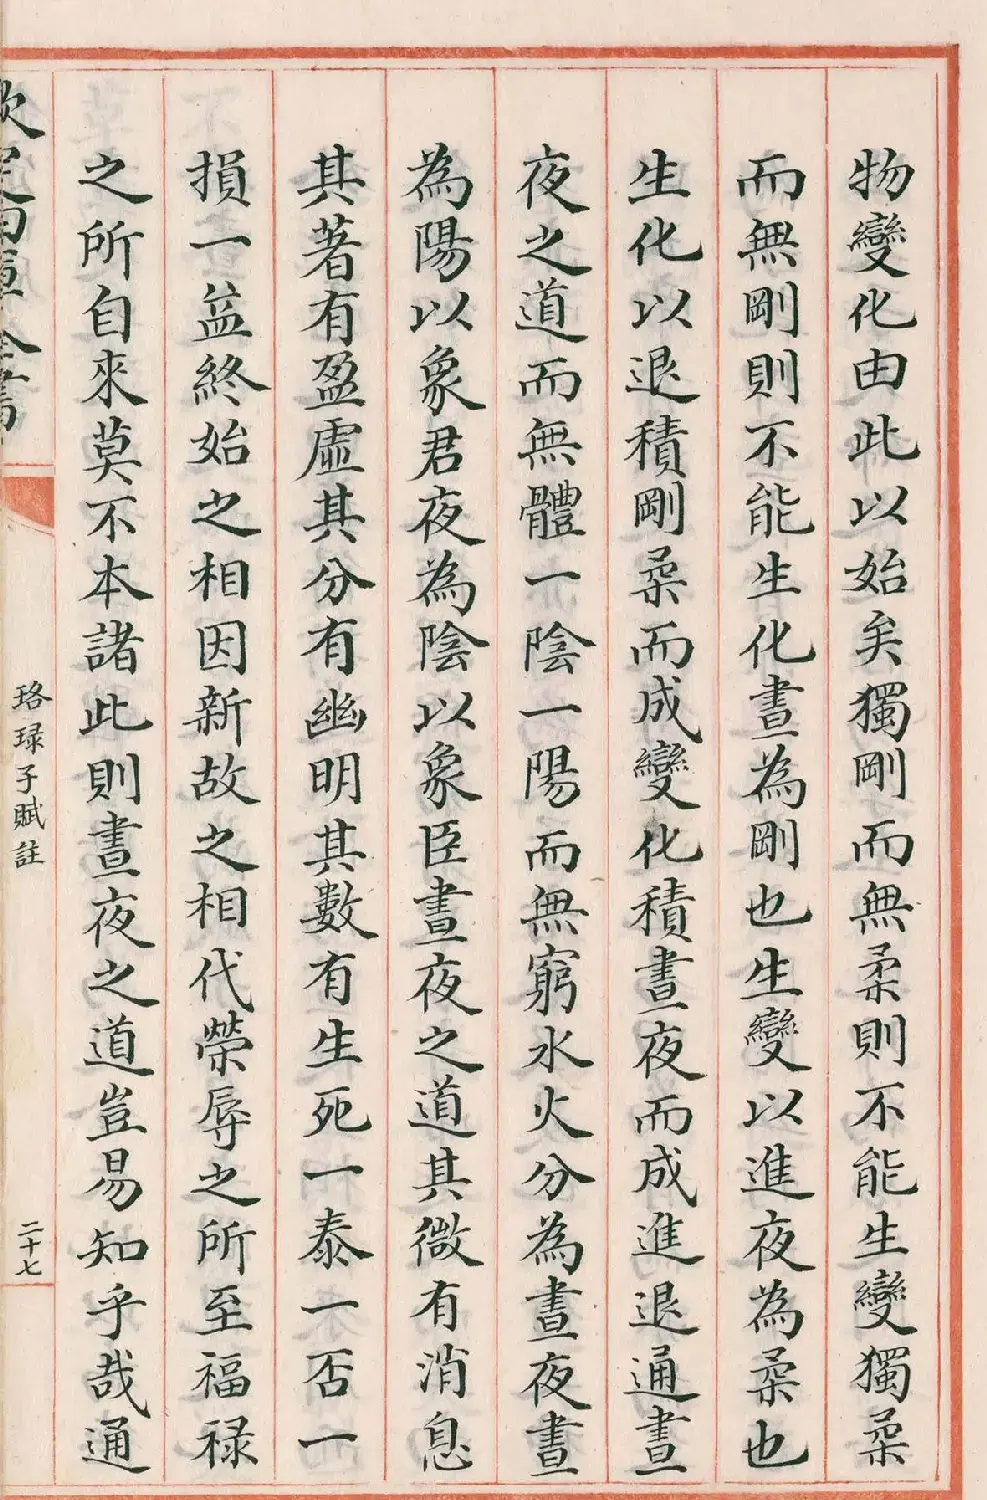 物變化由此以始矣獨剛而無柔則不能生變獨柔
而無剛則不能生化晝為剛也生變以進夜為柔也
生化以退積剛柔而成變化積晝夜而成進退通晝
夜之道而無體一陰一陽而無窮水火分為晝夜晝
為陽以象君夜為陰以象臣晝夜之道其微有消息
其著有盈虛其分有幽明其數有生死一泰一否一
損一益終始之相因新故之相代榮辱之所至福祿
之所自來莫不本諸此則晝夜之道豈易知乎哉通
欽定四庫全書
珞琭子賦註
二十七